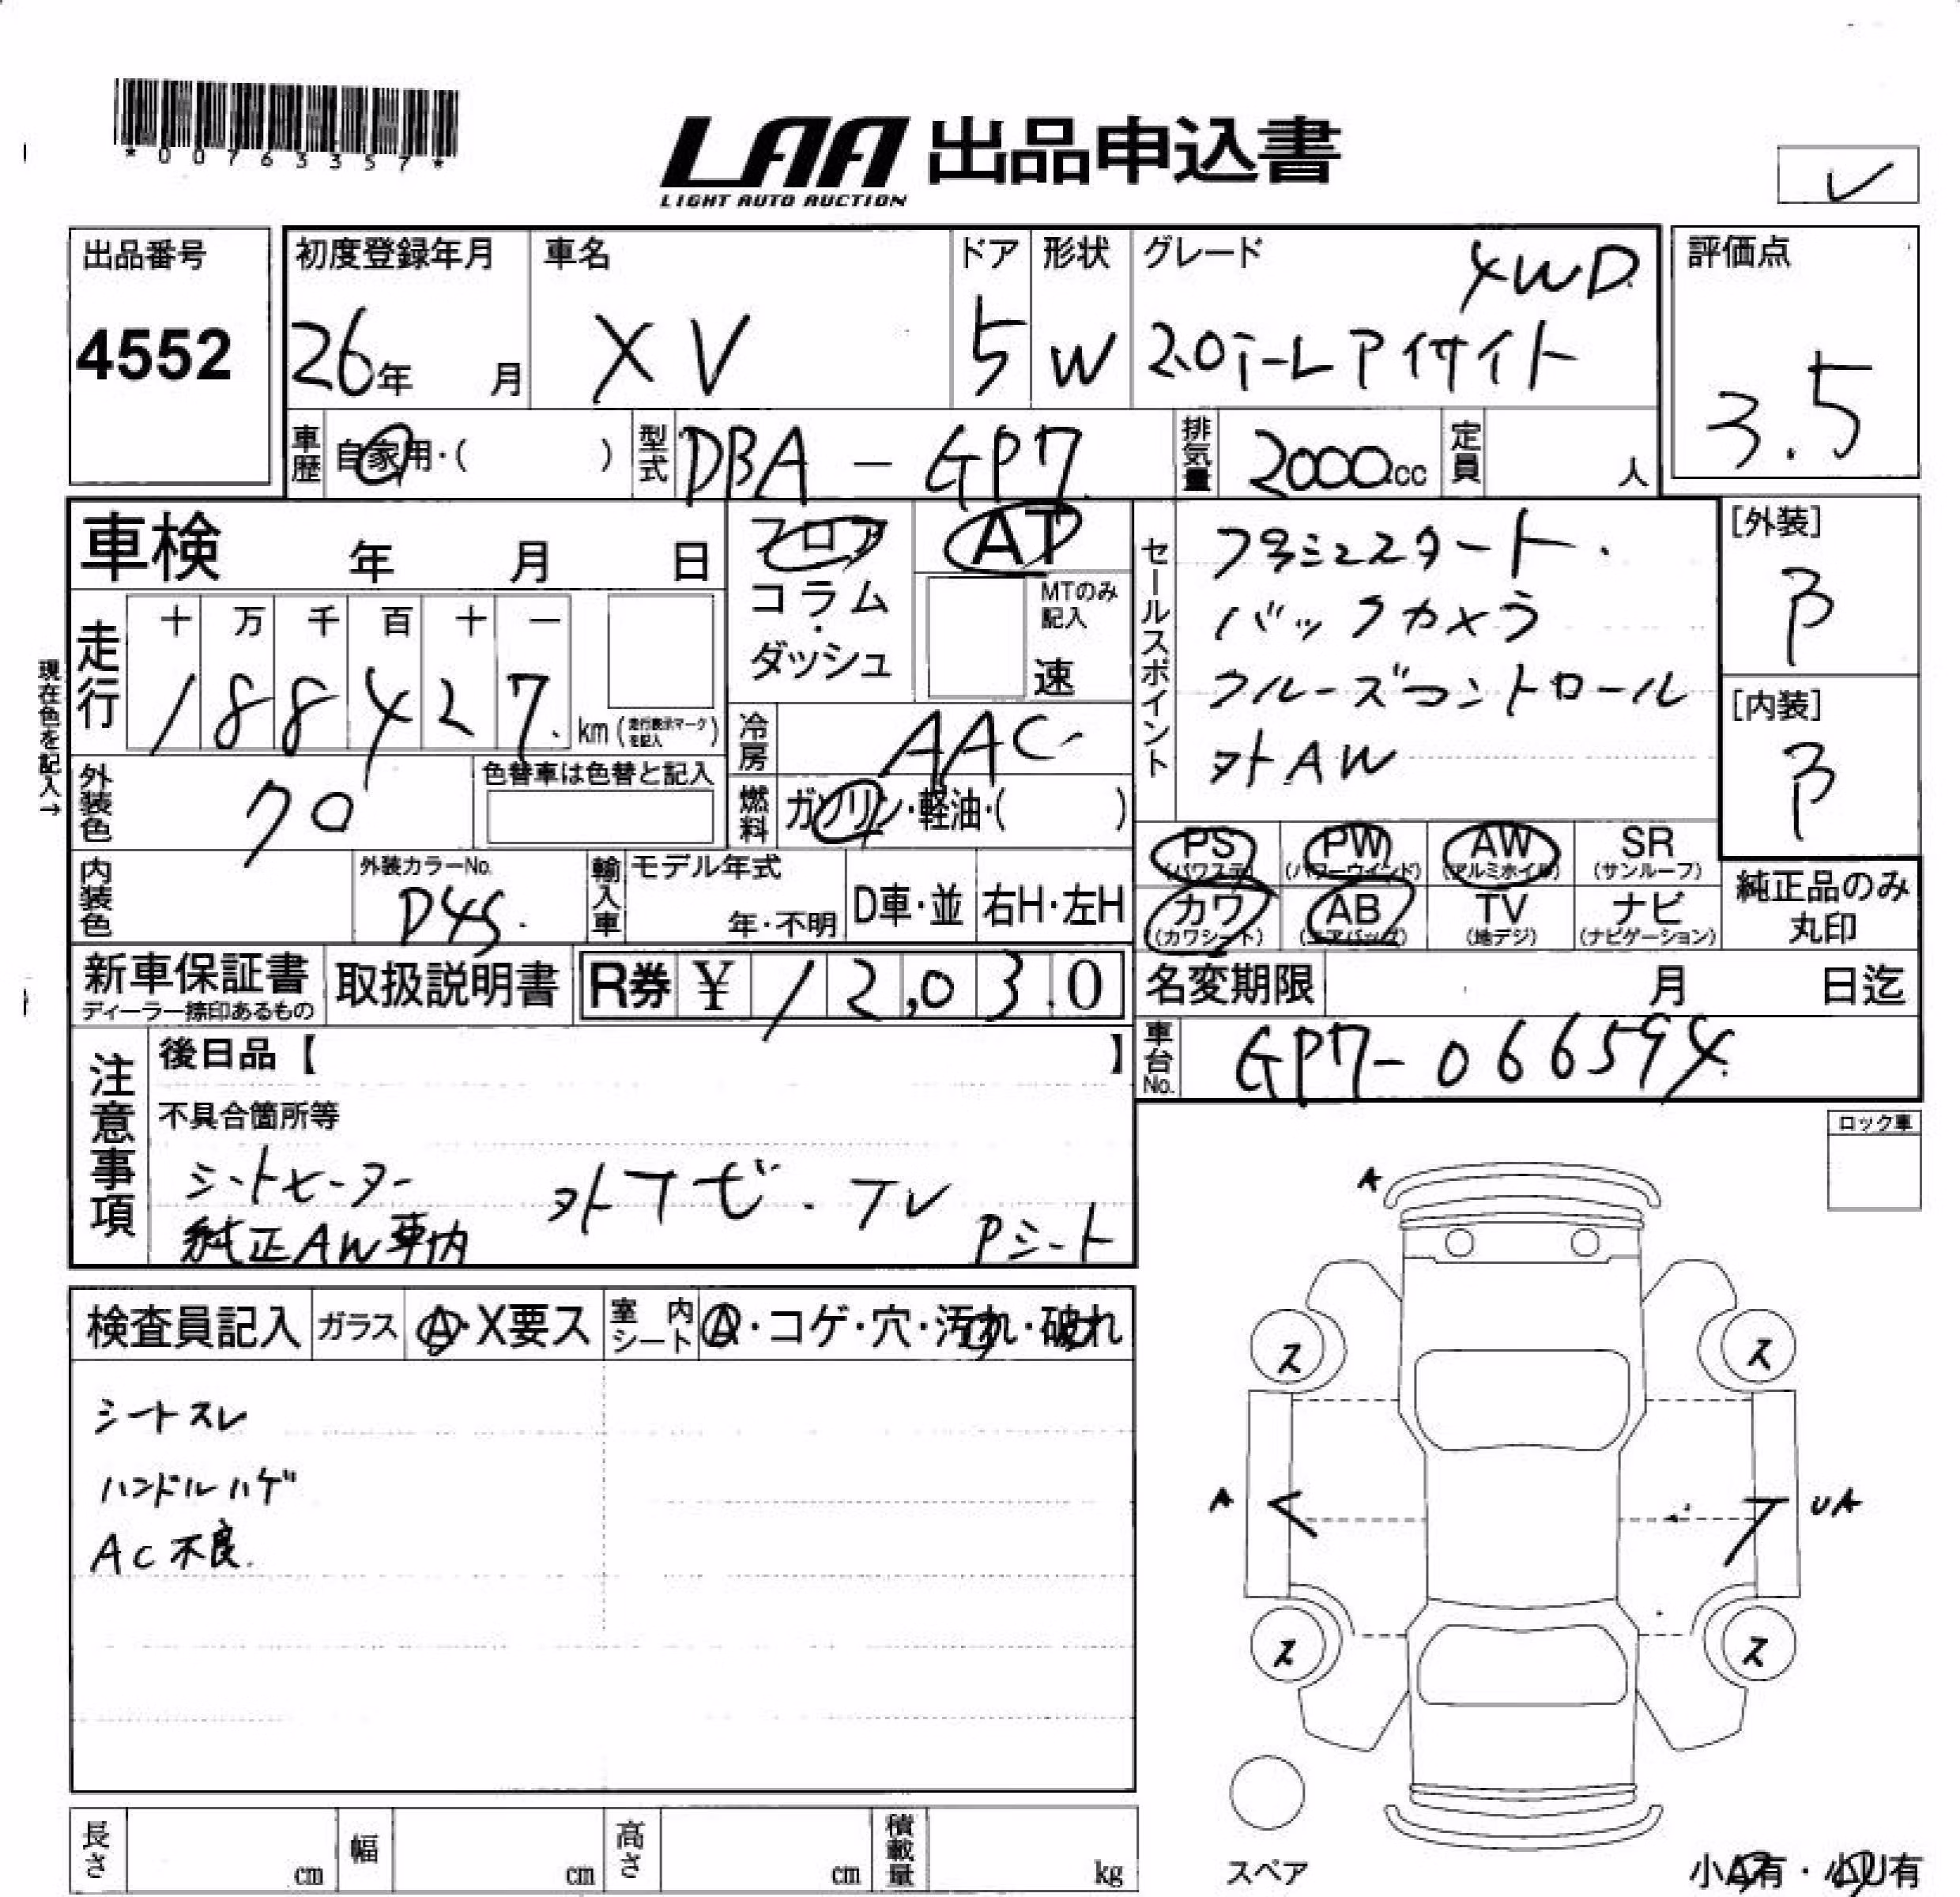 *00763357*
LAA 出品申込書
LIGHT AUTO AUCTION
出品番号
4552
初度登録年月
26年 月
車名
XV
ドア
5
形状
W
グレード
4WD
2.0i-L アイサイト
評価点
3.5
車歴 自家用・( )
型式 DBA-GP7
排気量 2000cc
定員 人
車検 年 月 日
フロア
コラム
・
ダッシュ
AT
MTのみ
記入
速
セールスポイント
プッシュスタート.
バックカメラ
クルーズコントロール
外AW
[外装]
B
[内装]
B
現在色を記入→
走行
十 万 千 百 十 一
1 8 8 4 2 7 km (走行表示マークを記入)
冷房 AAC
燃料 ガソリン・軽油・( )
外装色 クロ
色替車は色替と記入
PS (パワステ)
PW (パワーウインド)
AW (アルミホイル)
SR (サンルーフ)
カワ (カワシート)
AB (エアバッグ)
TV (地デジ)
ナビ (ナビゲーション)
純正品のみ
丸印
内装色
外装カラーNo.
D4S.
輸入車
モデル年式
年・不明
D車・並
右H・左H
新車保証書
ディーラー捺印あるもの
取扱説明書
R券 ¥ 12,030
名変期限 月 日迄
車台No. GP7-066594
注意事項
後日品【 】
不具合箇所等
シートヒーター 外ナビ.TV
純正AW車内 Pシート
ロック車
検査員記入
ガラス A・X要ス
室内シート A・コゲ・穴・汚れ・破れ
シートスレ
ハンドルハゲ
AC不良.
A
ス ス
A UA
ス ス
スペア
小A有・小U有
長さ cm
幅 cm
高さ cm
積載量 kg